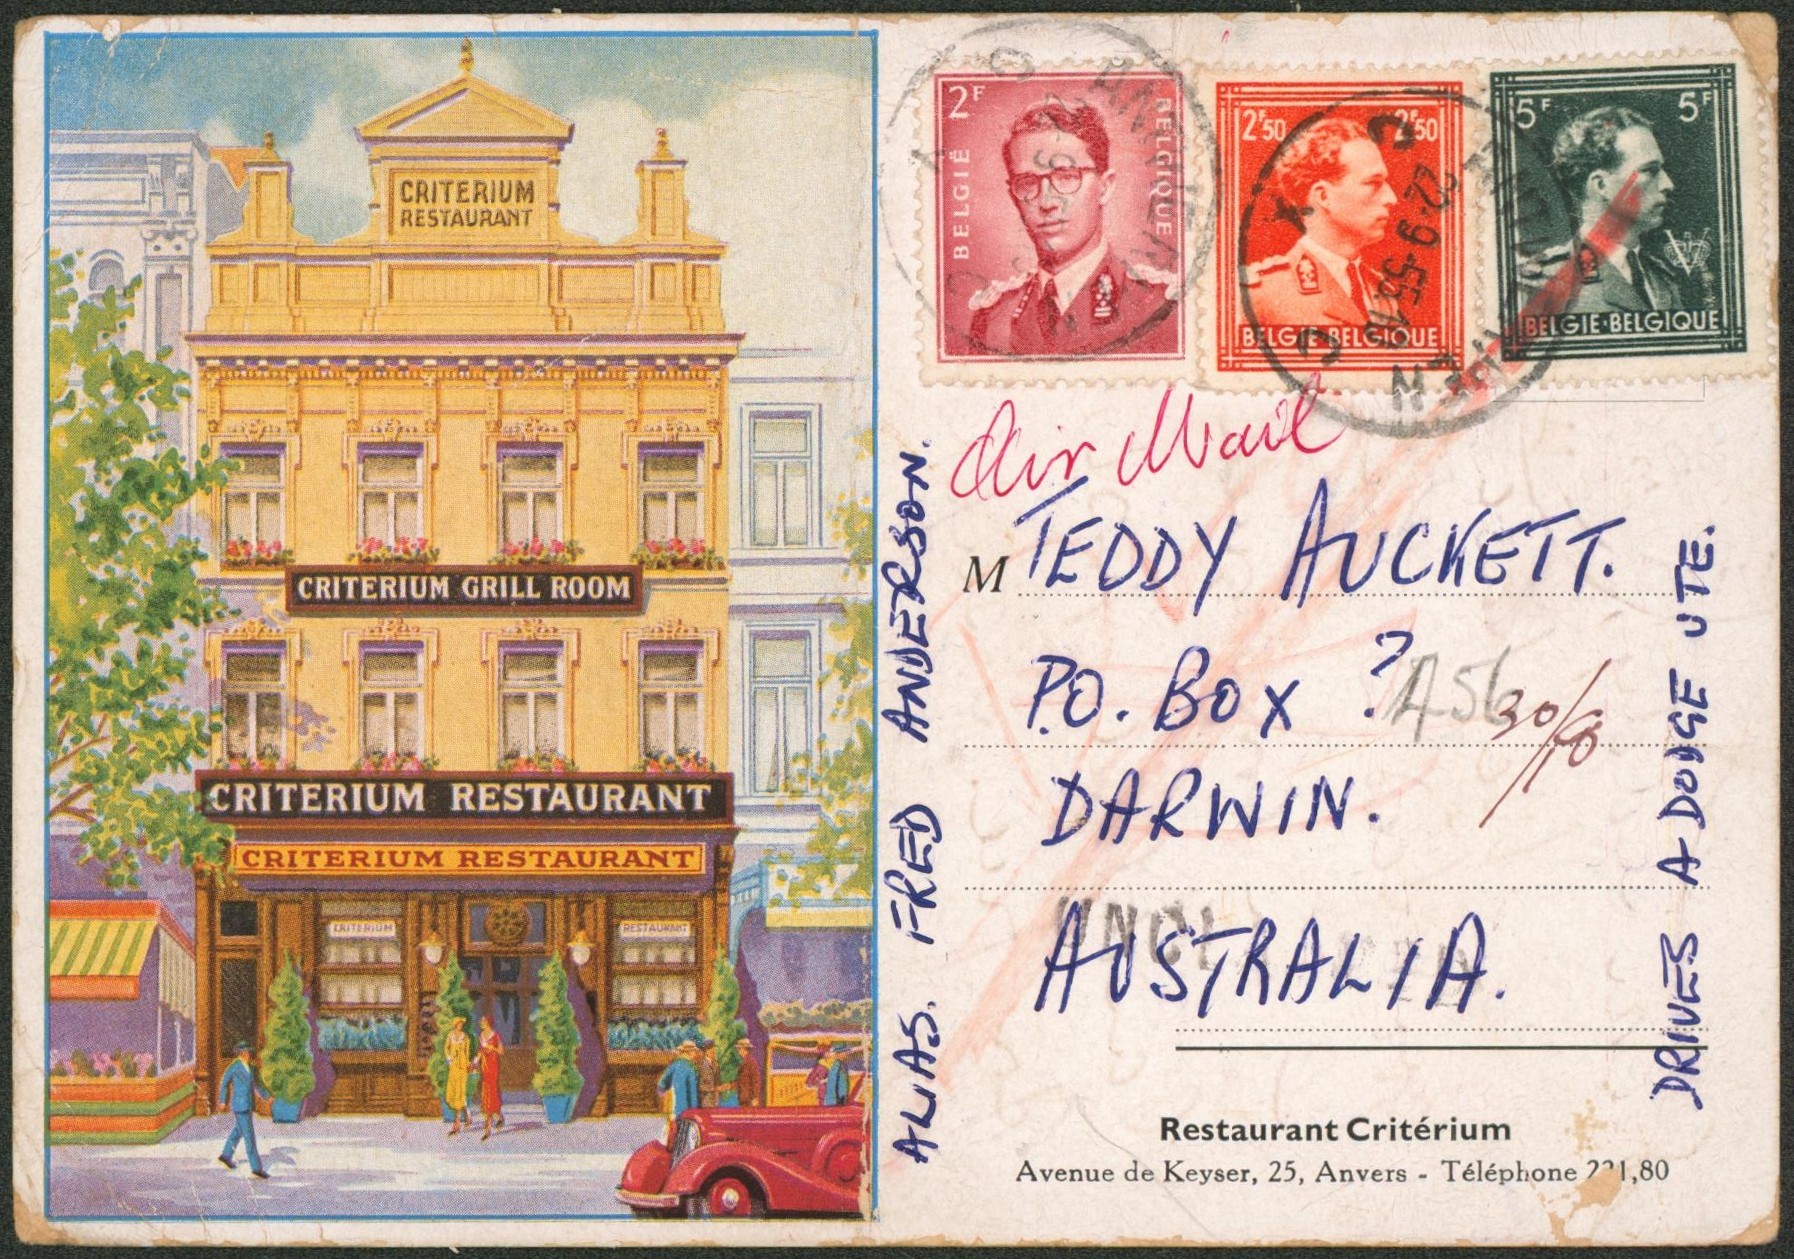 CRITERIUM
RESTAURANT
CRITERIUM GRILL ROOM
CRITERIUM RESTAURANT
CRITERIUM RESTAURANT
CRITERIUM
RESTAURANT
2F
BELGIË
BELGIQUE
2F50
2F50
BELGIE·BELGIQUE
5F
5F
BELGIE·BELGIQUE
22-9-55
Air Mail
M TEDDY AUCKETT.
P.O. BOX ? A56 30/8
DARWIN.
AUSTRALIA.
ALIAS. FRED ANDERSON.
DRIVES A DODGE UTE.
Restaurant Critérium
Avenue de Keyser, 25, Anvers - Téléphone